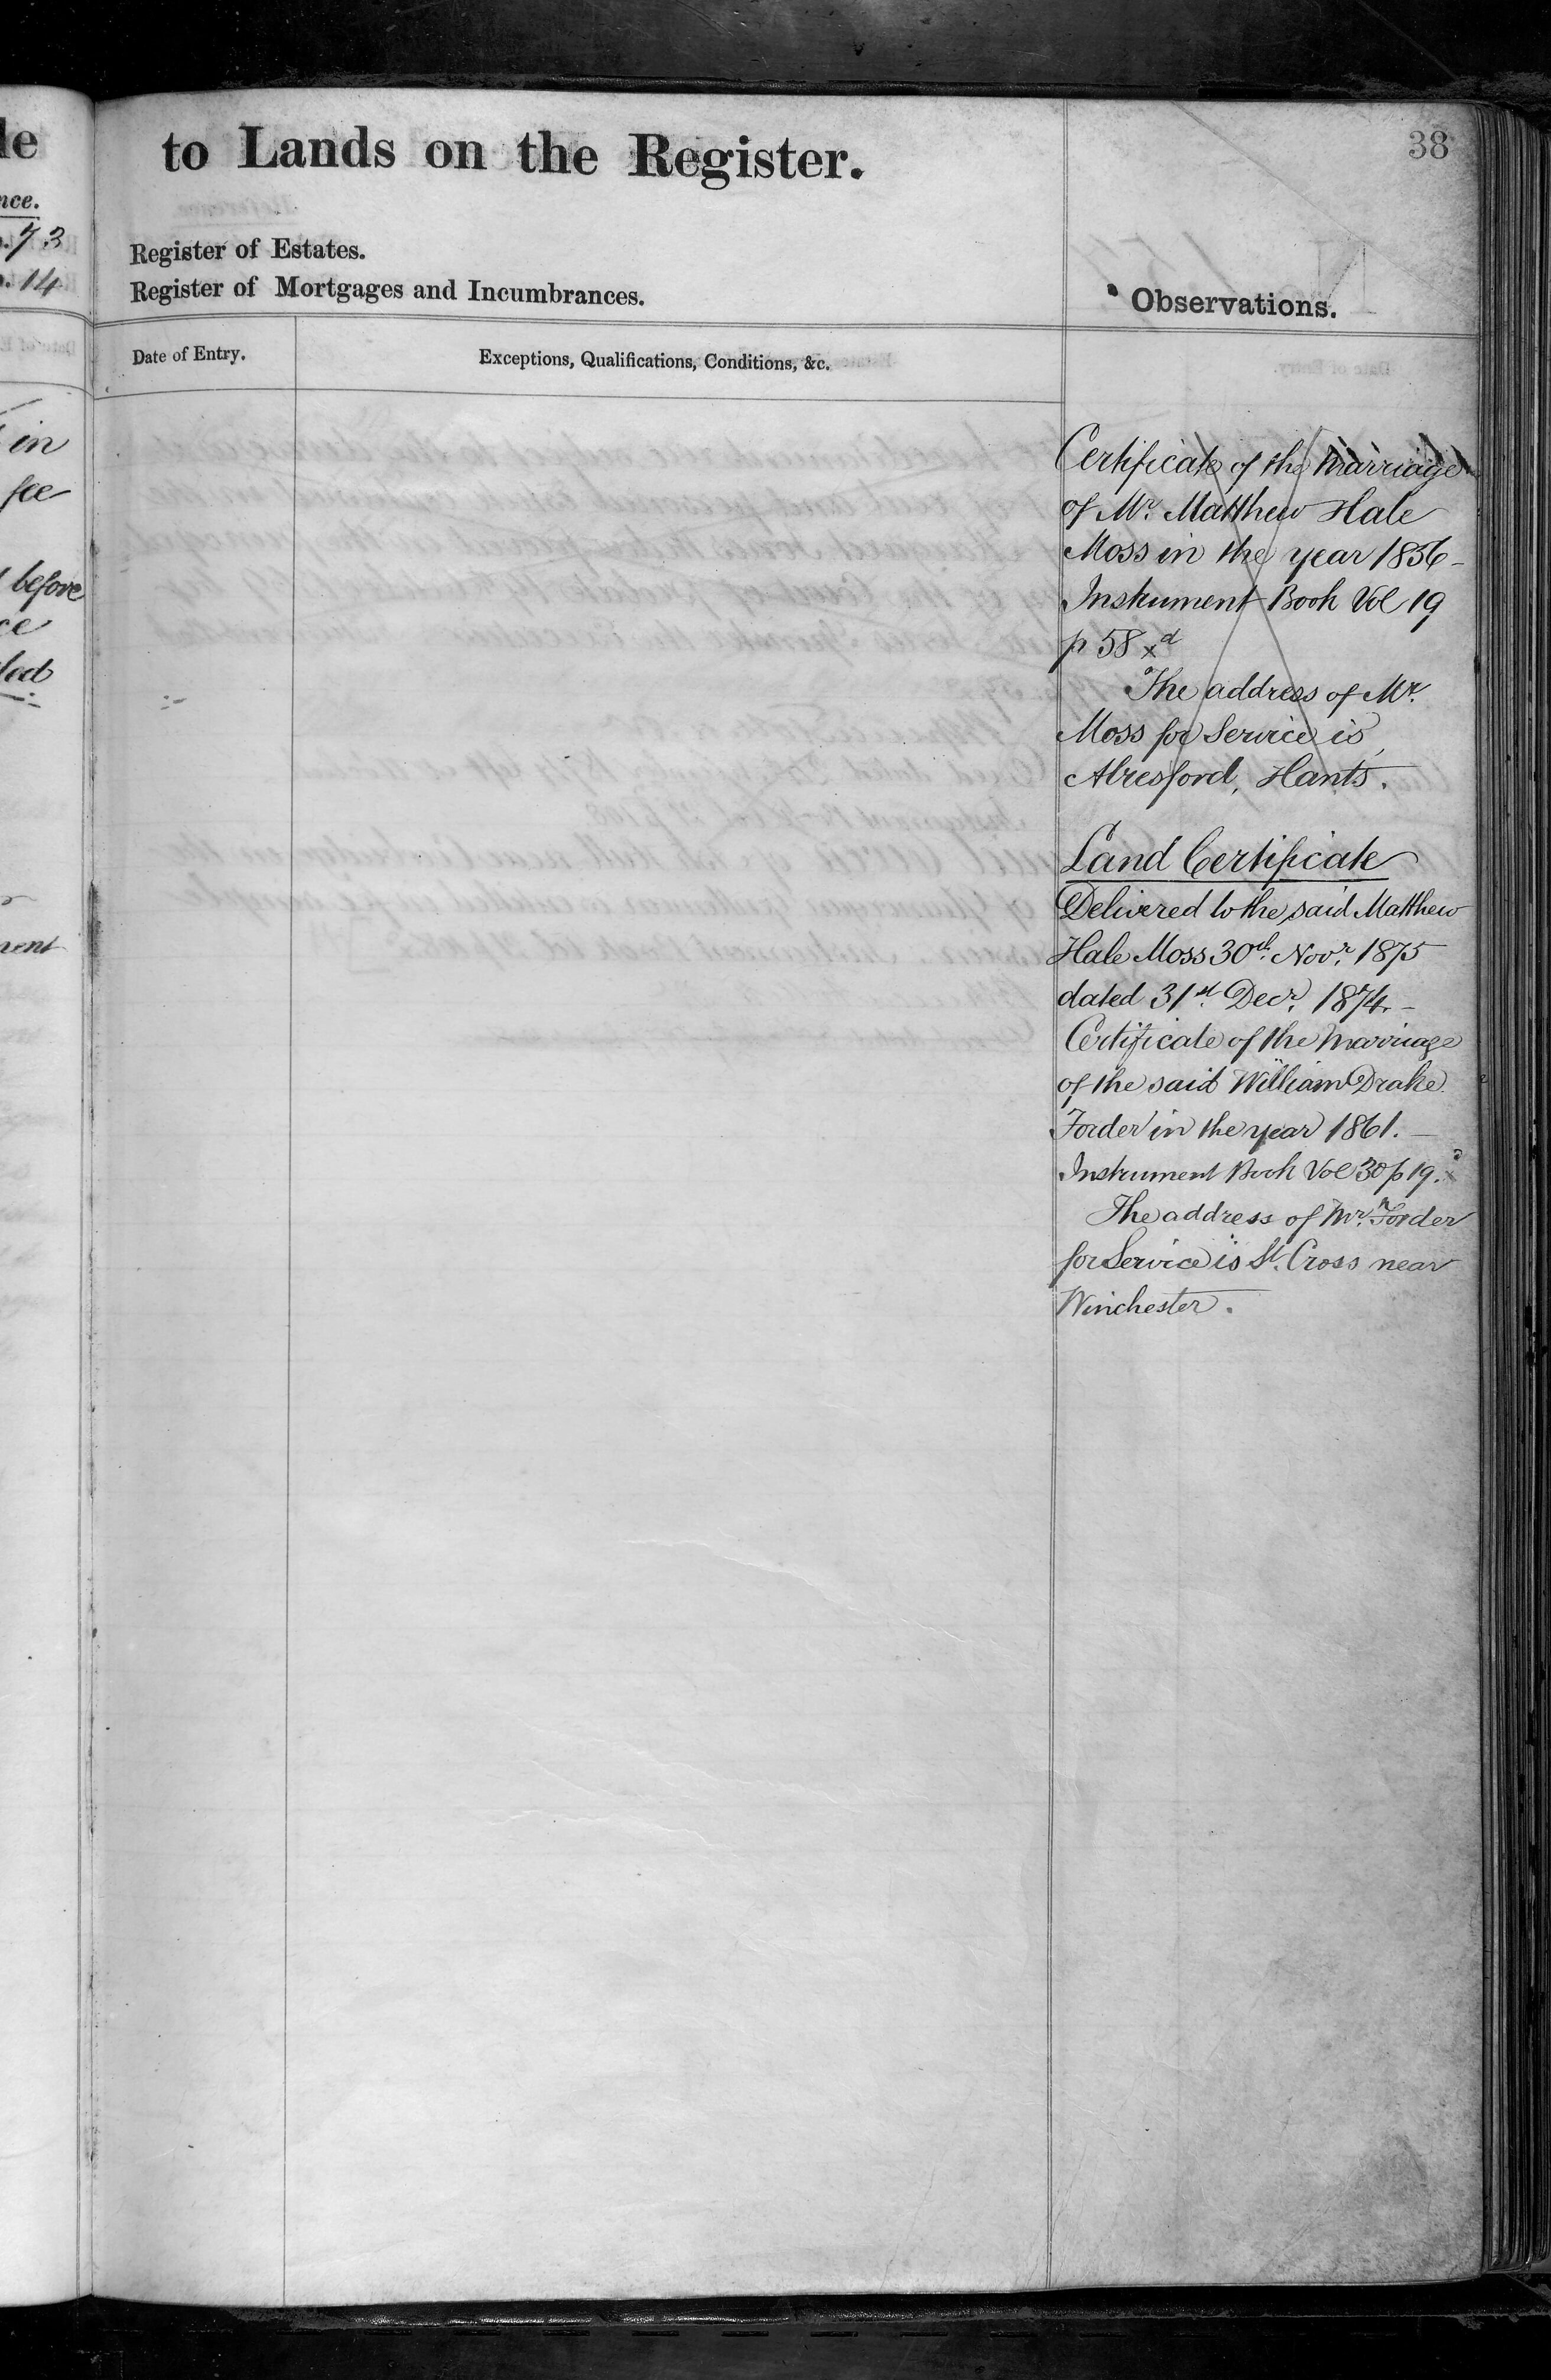 le
nce.
73
14
in
fee
before
ce
ment
to Lands on the Register.
38
Register of Estates.
Register of Mortgages and Incumbrances.
Observations.
Date of Entry.
Exceptions, Qualifications, Conditions, &c.
Certificate of the Marriage
of Mr. Matthew Hale
Moss in the year 1856 -
Instrument Book Vol 19
p 58 x d
The address of Mr.
Moss for Service is
Alresford, Hants.
Land Certificate
Delivered to the said Matthew
Hale Moss 30th. Novr. 1875
dated 31st. Decr. 1874. -
Certificate of the Marriage
of the said William Drake
Forder in the year 1861. -
Instrument Book Vol 30 p 19.
The address of Mr. Forder
for Service is St. Cross near
Winchester.